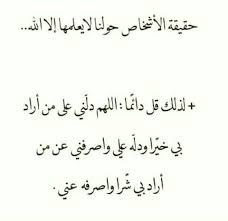 حقيقة الأشخاص حولنا لايعلمها إلا الله..
+ لذلك قل دائمًا: اللهم دلّني على من أراد
بي خيرًا ودلّه علي واصرفني عن من
أراد بي شرًا واصرفه عني.